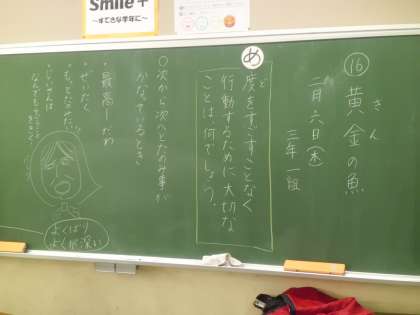 Smile+
～すてきな学年に～
⑯黄金の魚
きん
二月六日(木)
三年一組
め
度をすごすことなく
ど
行動するために大切な
ことは、何でしょう。
○次から次へとたのみ事が
かなっているとき
・最高ーだわ
・ぜいたく
・もっとなせたい!
・じいさんは
なんでも
よくばり
よくが深い